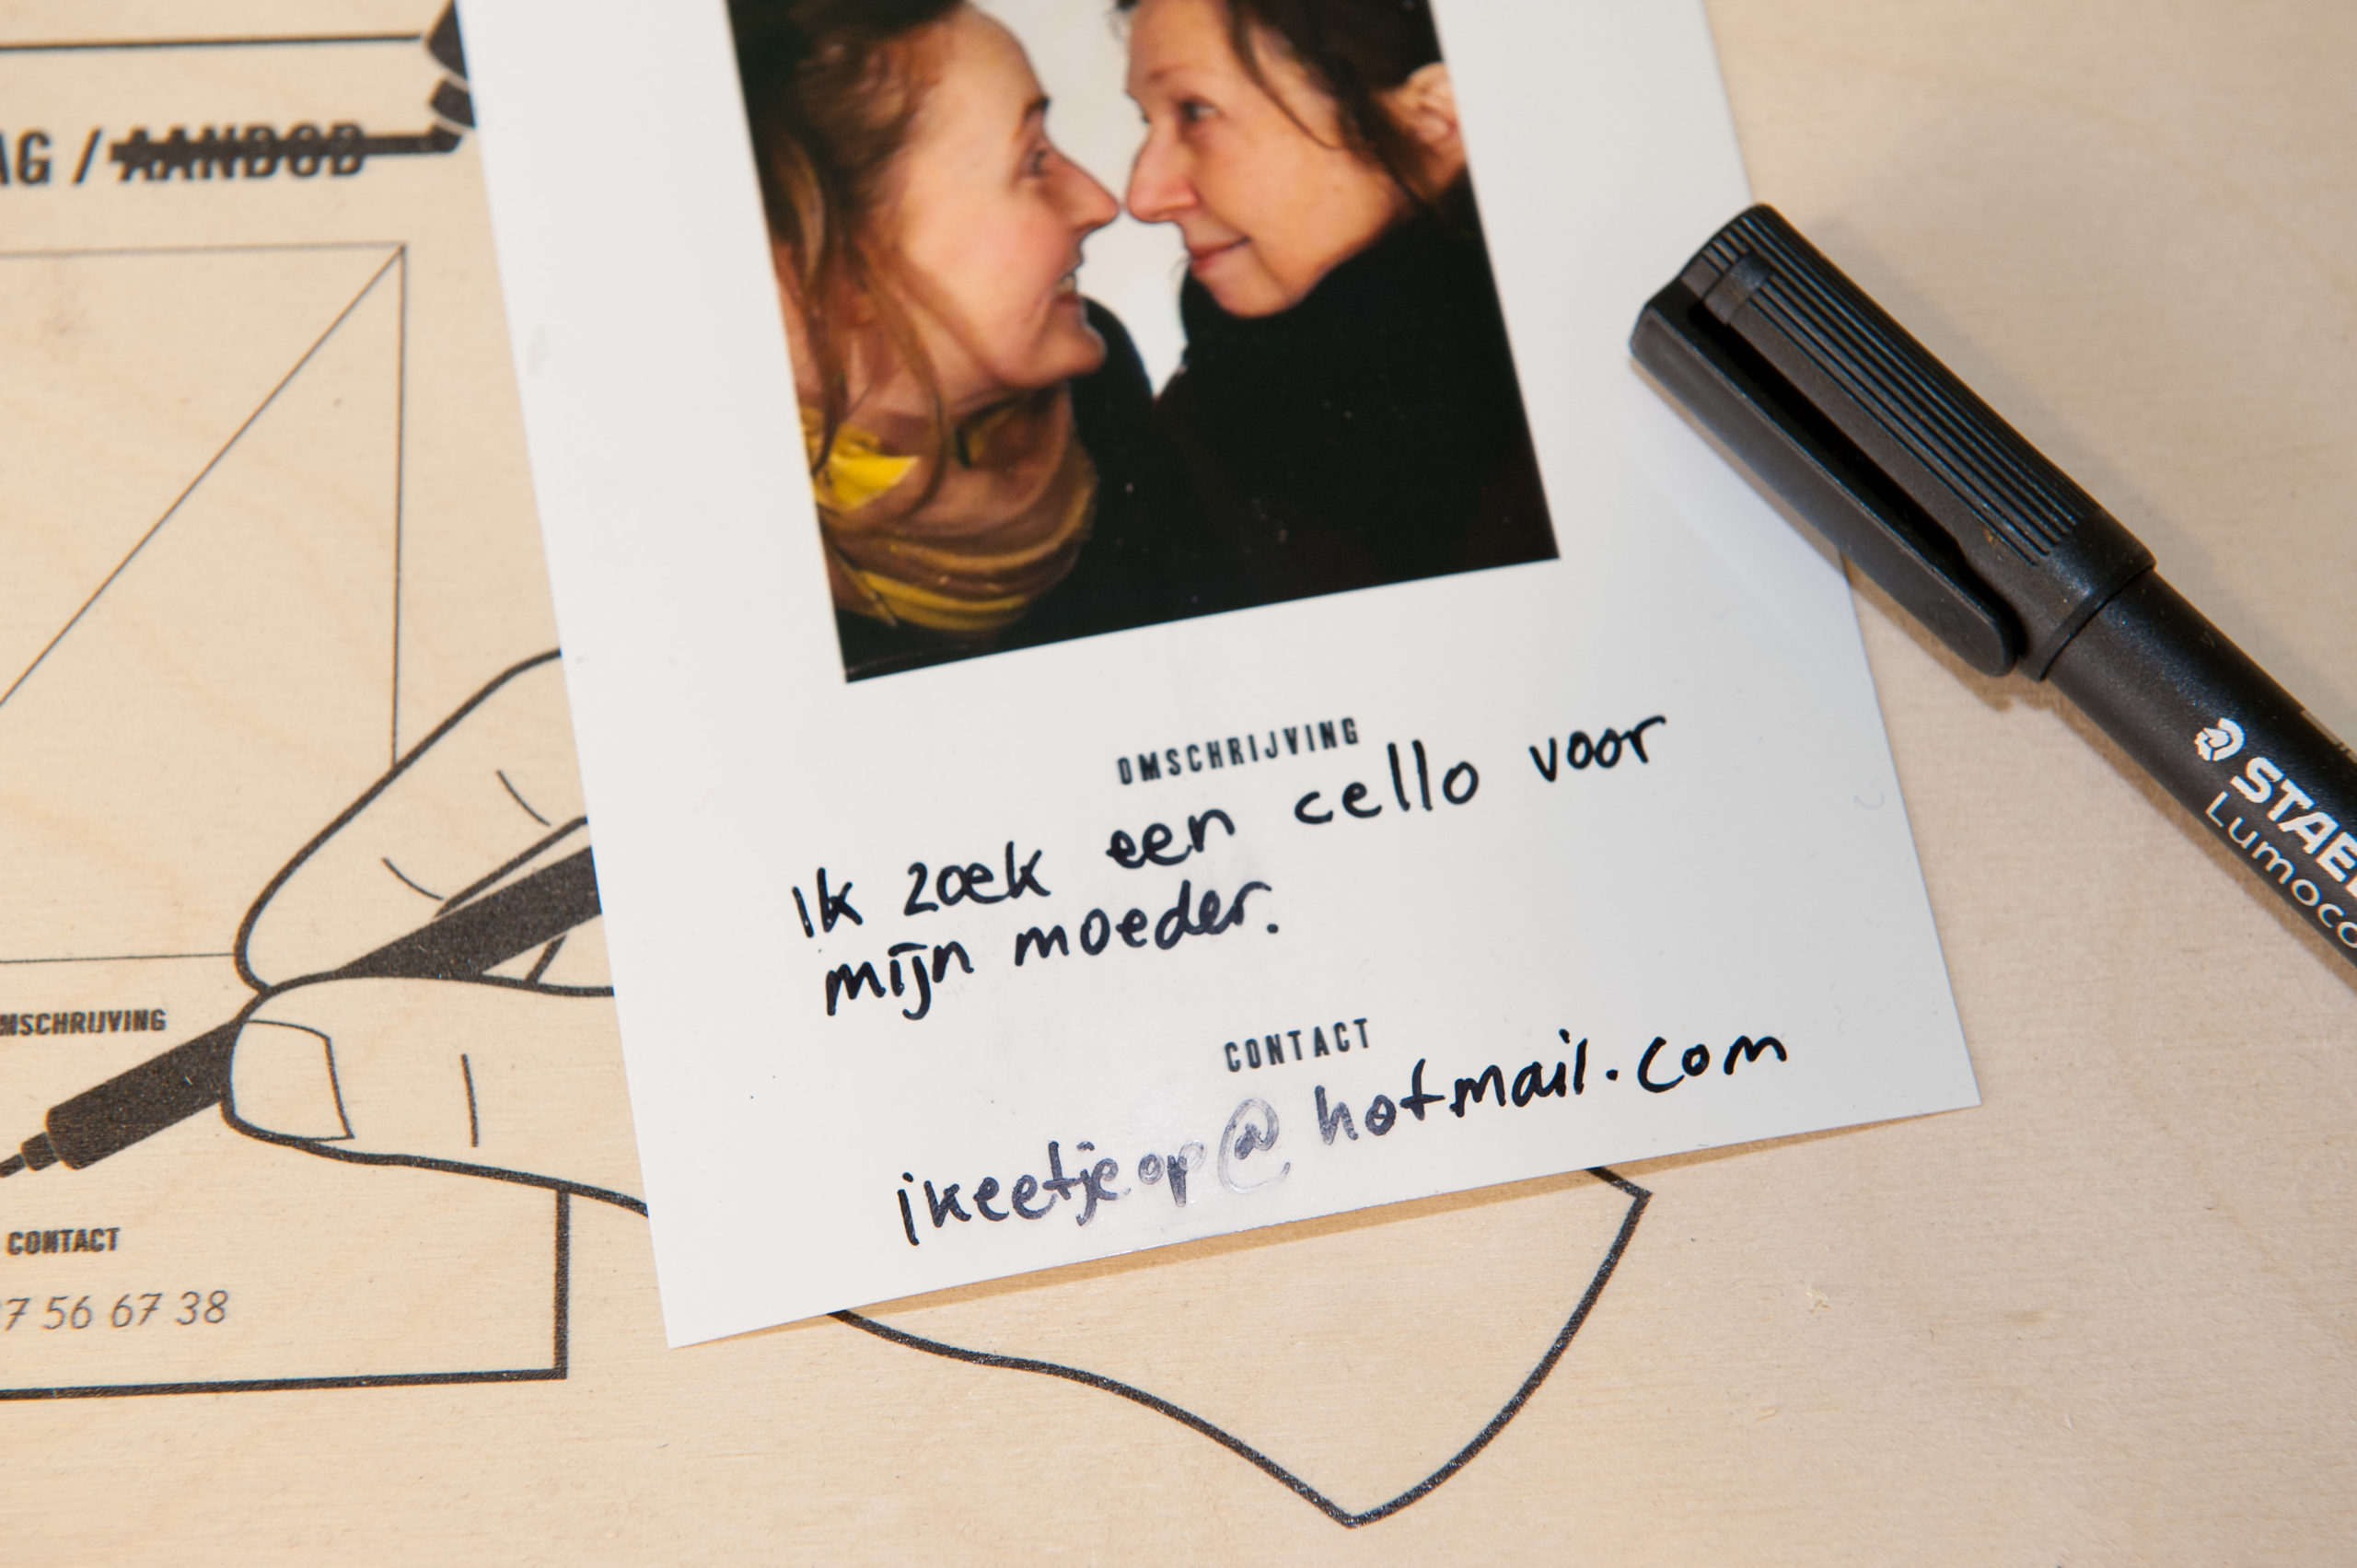 AG / AANBOD
OMSCHRIJVING
Ik zoek een cello voor
mijn moeder.
CONTACT
ikeetjeop@hotmail.com
MSCHRIJVING
CONTACT
7 56 67 38
STAE
Lumoco